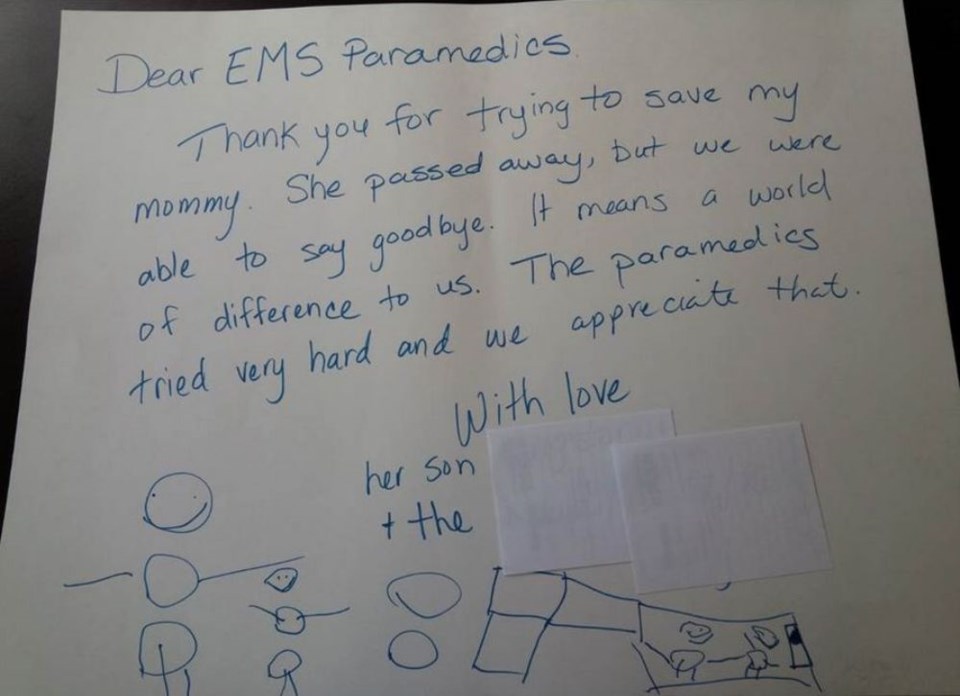 Dear EMS Paramedics.
Thank you for trying to save my
mommy. She passed away, but we were
able to say goodbye. It means a world
of difference to us. The paramedics
tried very hard and we appreciate that.
With love
her son
+ the